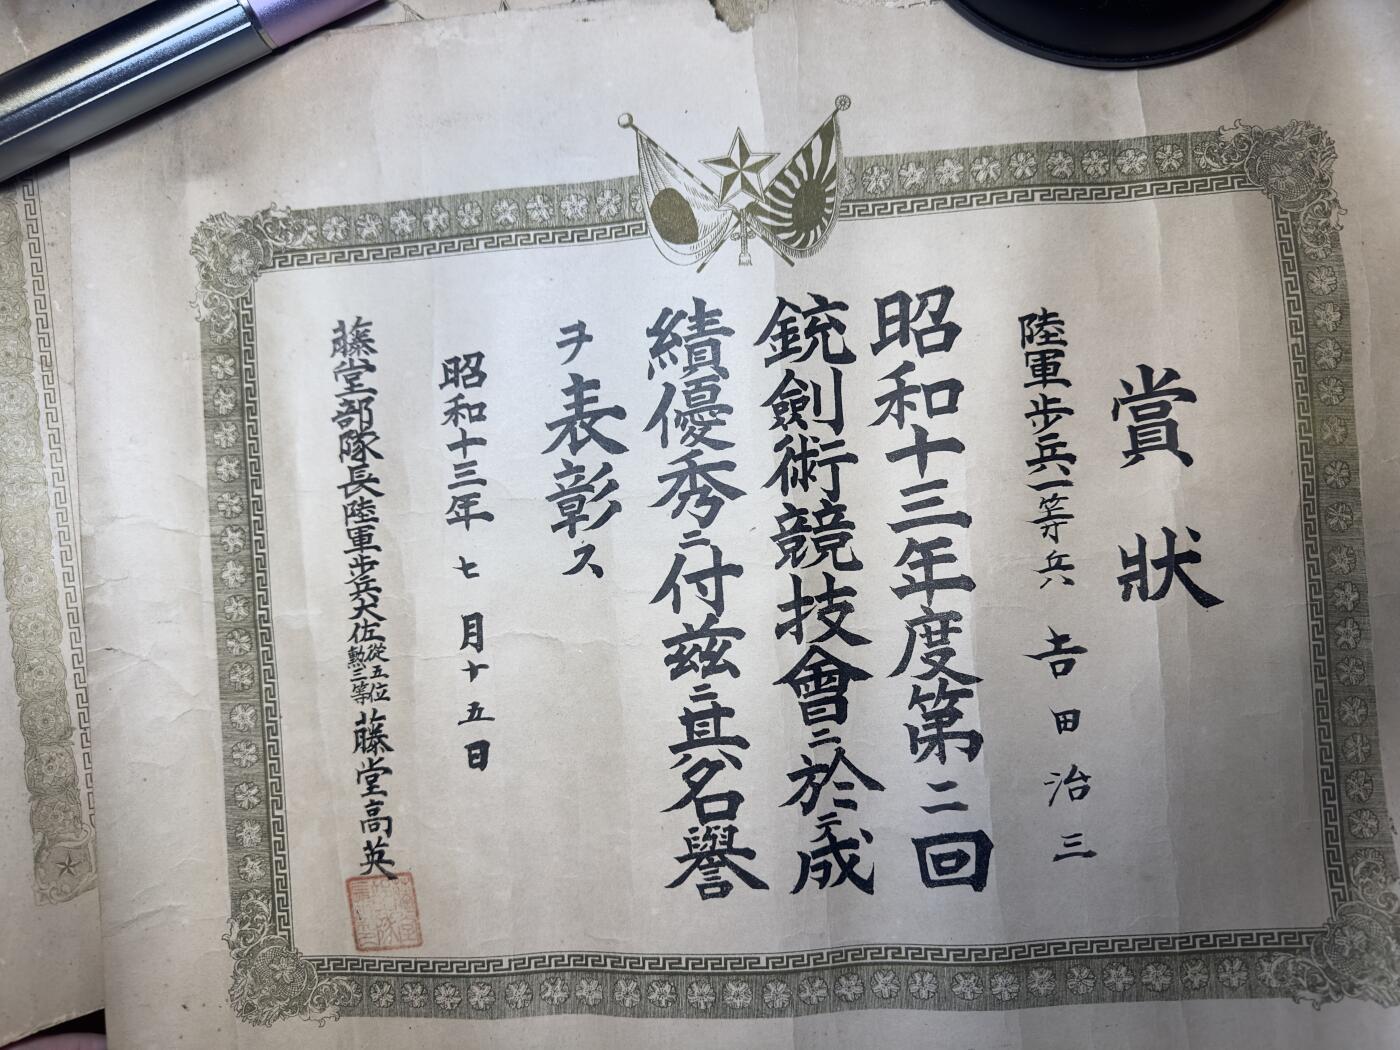 賞狀
陸軍歩兵一等兵 吉田治三
昭和十三年度第二回
銃劍術競技會ニ於テ成
績優秀ニ付茲ニ其名譽
ヲ表彰ス
昭和十三年七月十五日
藤堂部隊長陸軍歩兵大佐從五位勲三等藤堂高英